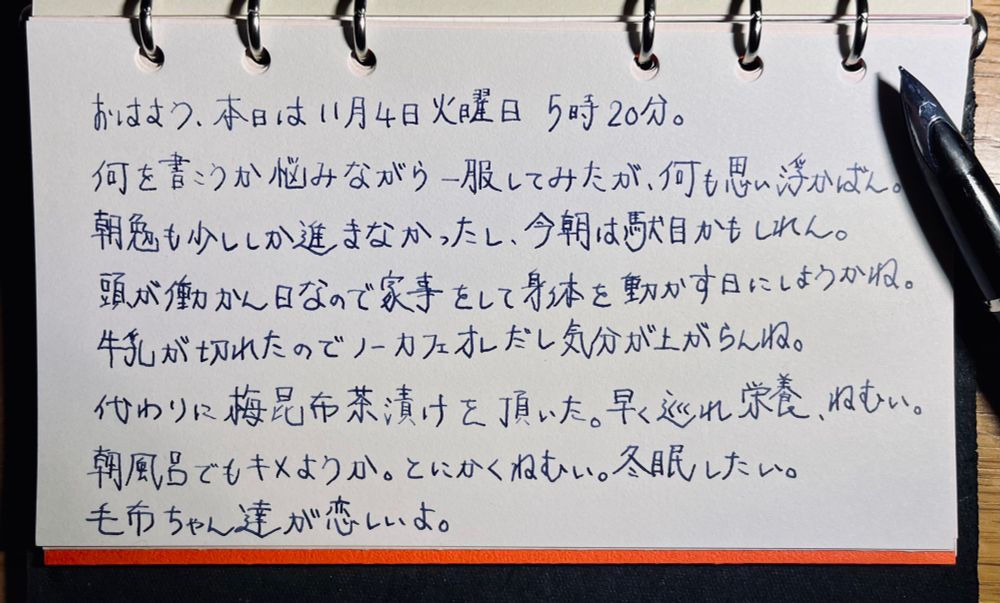 おはよう、本日は11月4日火曜日 5時20分。
何を書こうか悩みながら一服してみたが、何も思い浮かばん。
朝勉も少ししか進まなかったし、今朝は駄目かもしれん。
頭が働かん日なので家事をして身体を動かす日にしようかね。
牛乳が切れたのでノーカフェオレだし気分が上がらんね。
代わりに梅昆布茶漬けを頂いた。早く巡れ栄養、ねむい。
朝風呂でもキメようか。とにかくねむい。冬眠したい。
毛布ちゃん達が恋しいよ。